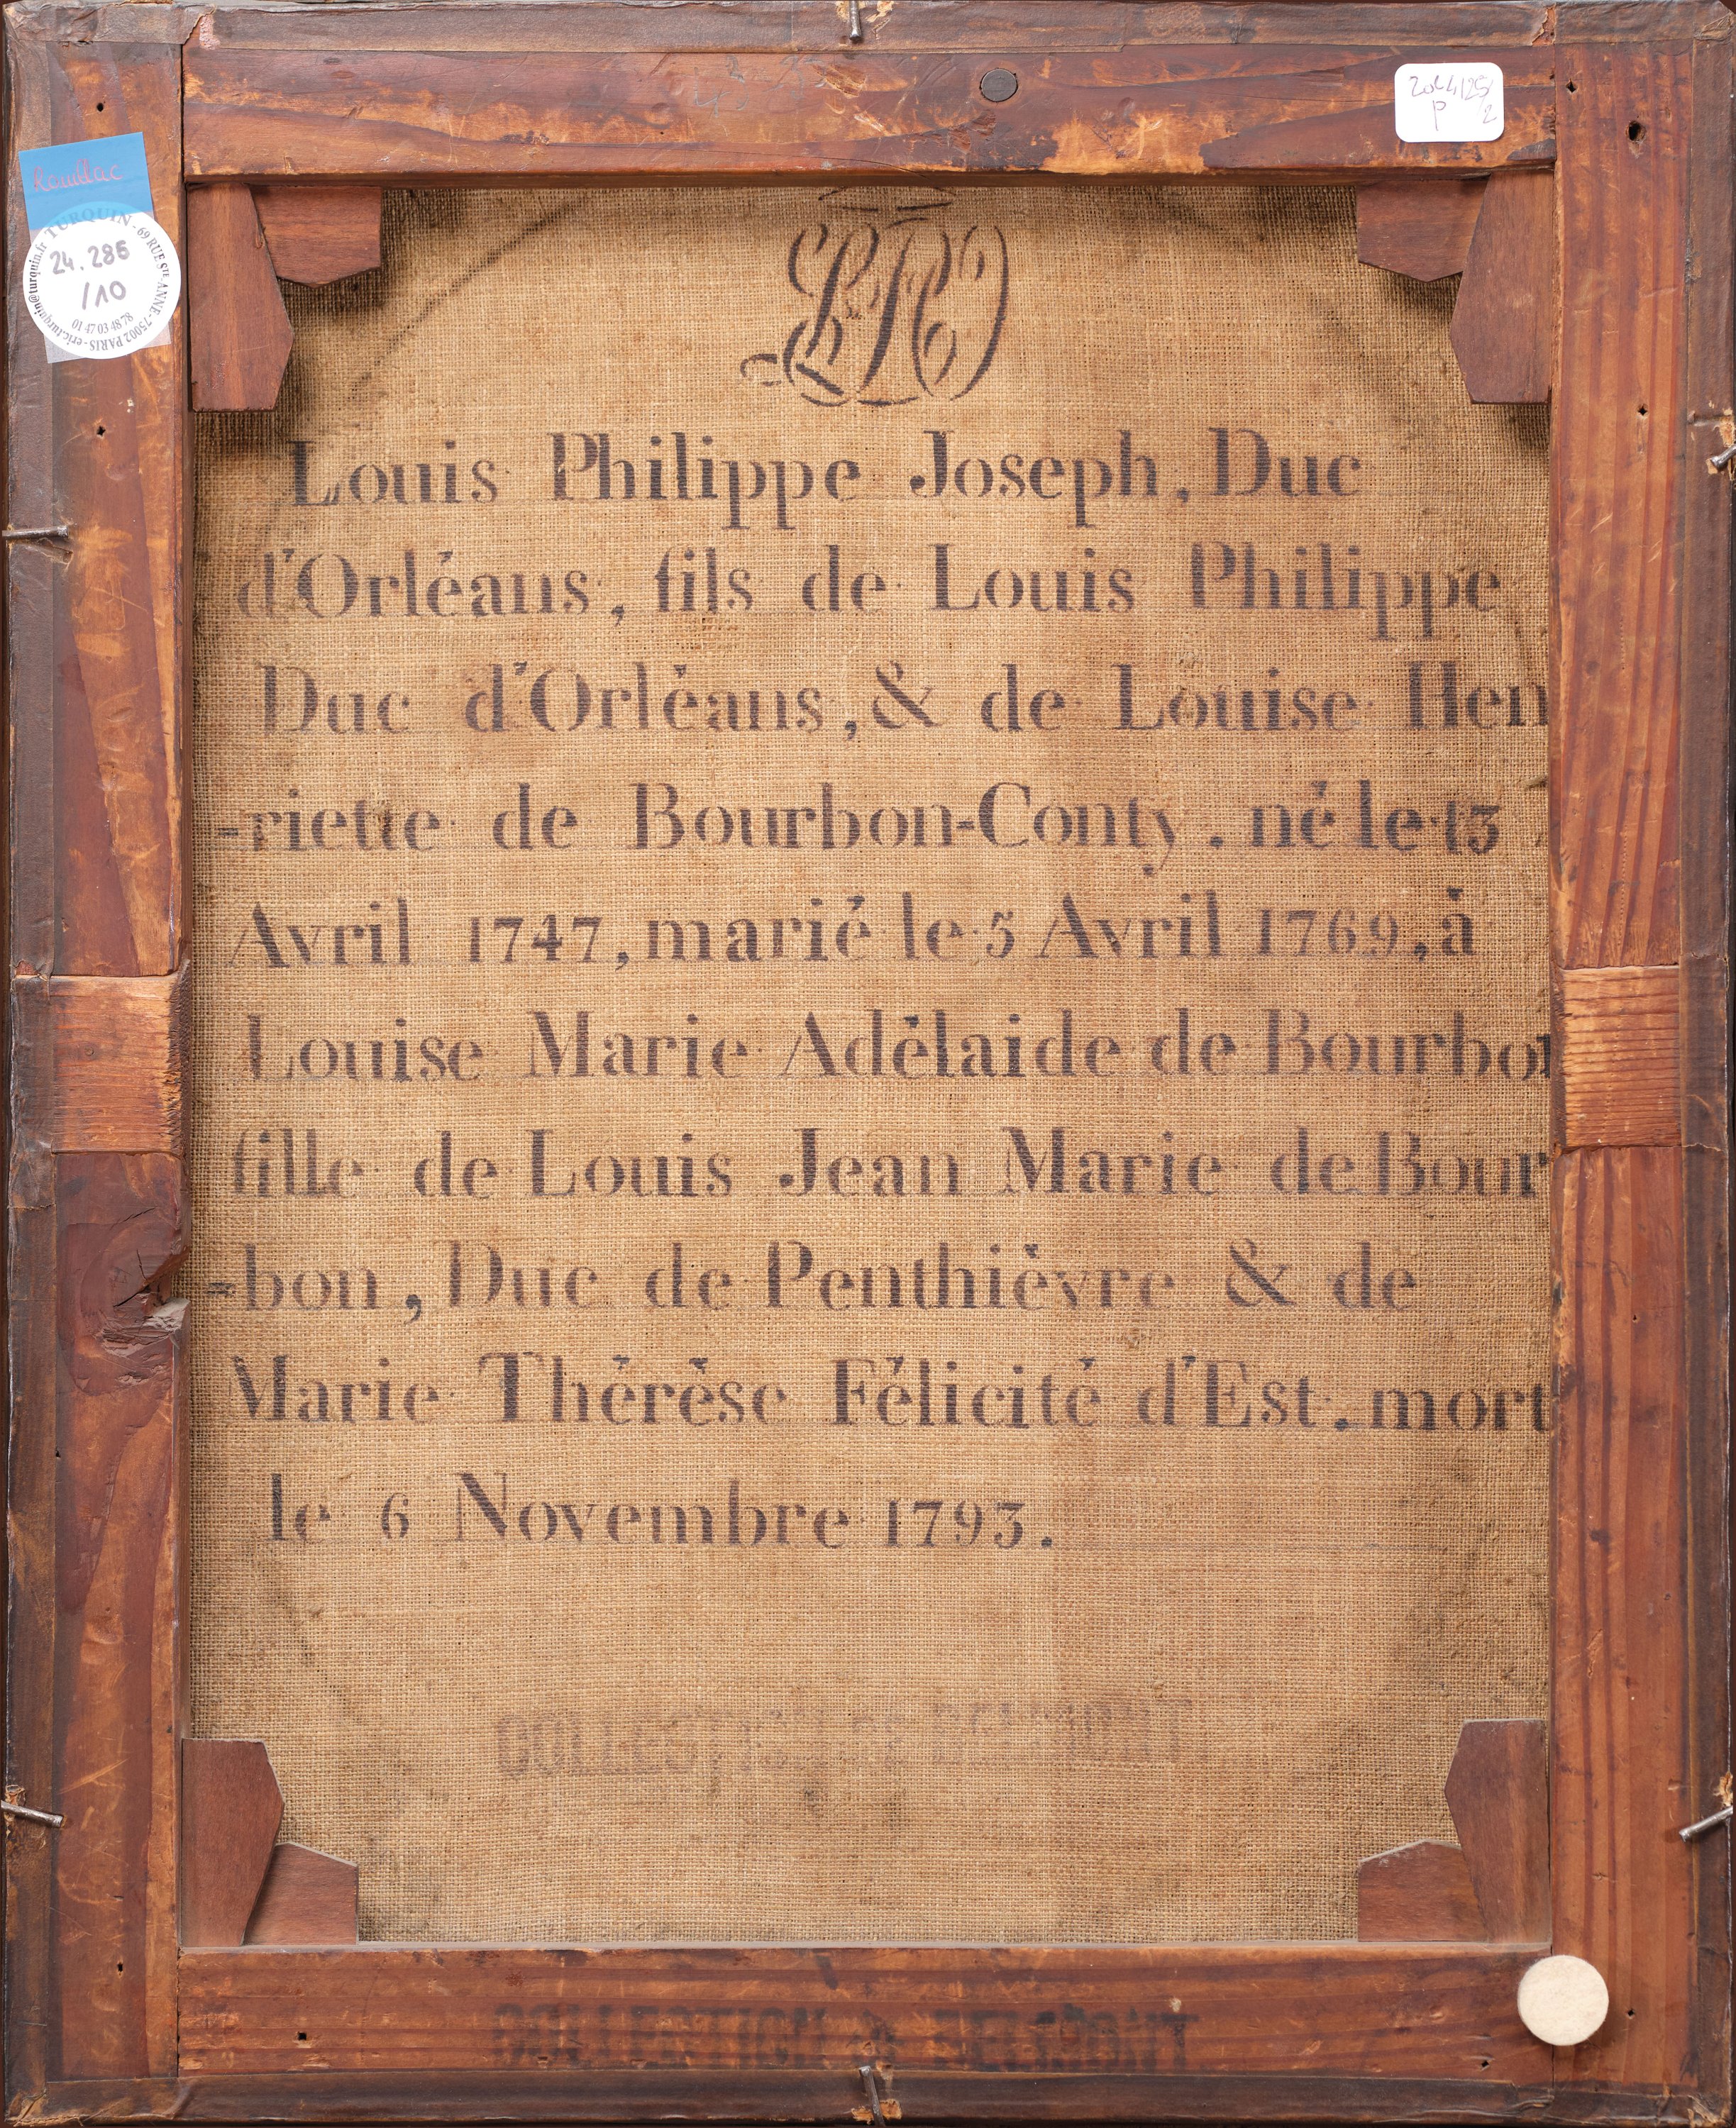 2044/25/2
P
Rouillac
TURQUIN - 69 RUE STE-ANNE - 75002 PARIS - eric.turquin@turquin.fr
24.286
/10
01 47 03 48 78
LPO
Louis Philippe Joseph, Duc
d'Orléans, fils de Louis Philippe
Duc d'Orléans, & de Louise Hen
-riette de Bourbon-Conty. né le 13
Avril 1747, marié le 5 Avril 1769, à
Louise Marie Adélaide de Bourbon
fille de Louis Jean Marie de Bour
-bon, Duc de Penthièvre & de
Marie Thérése Félicité d'Est. mort
le 6 Novembre 1793.
COLLECTION
COLLECTION